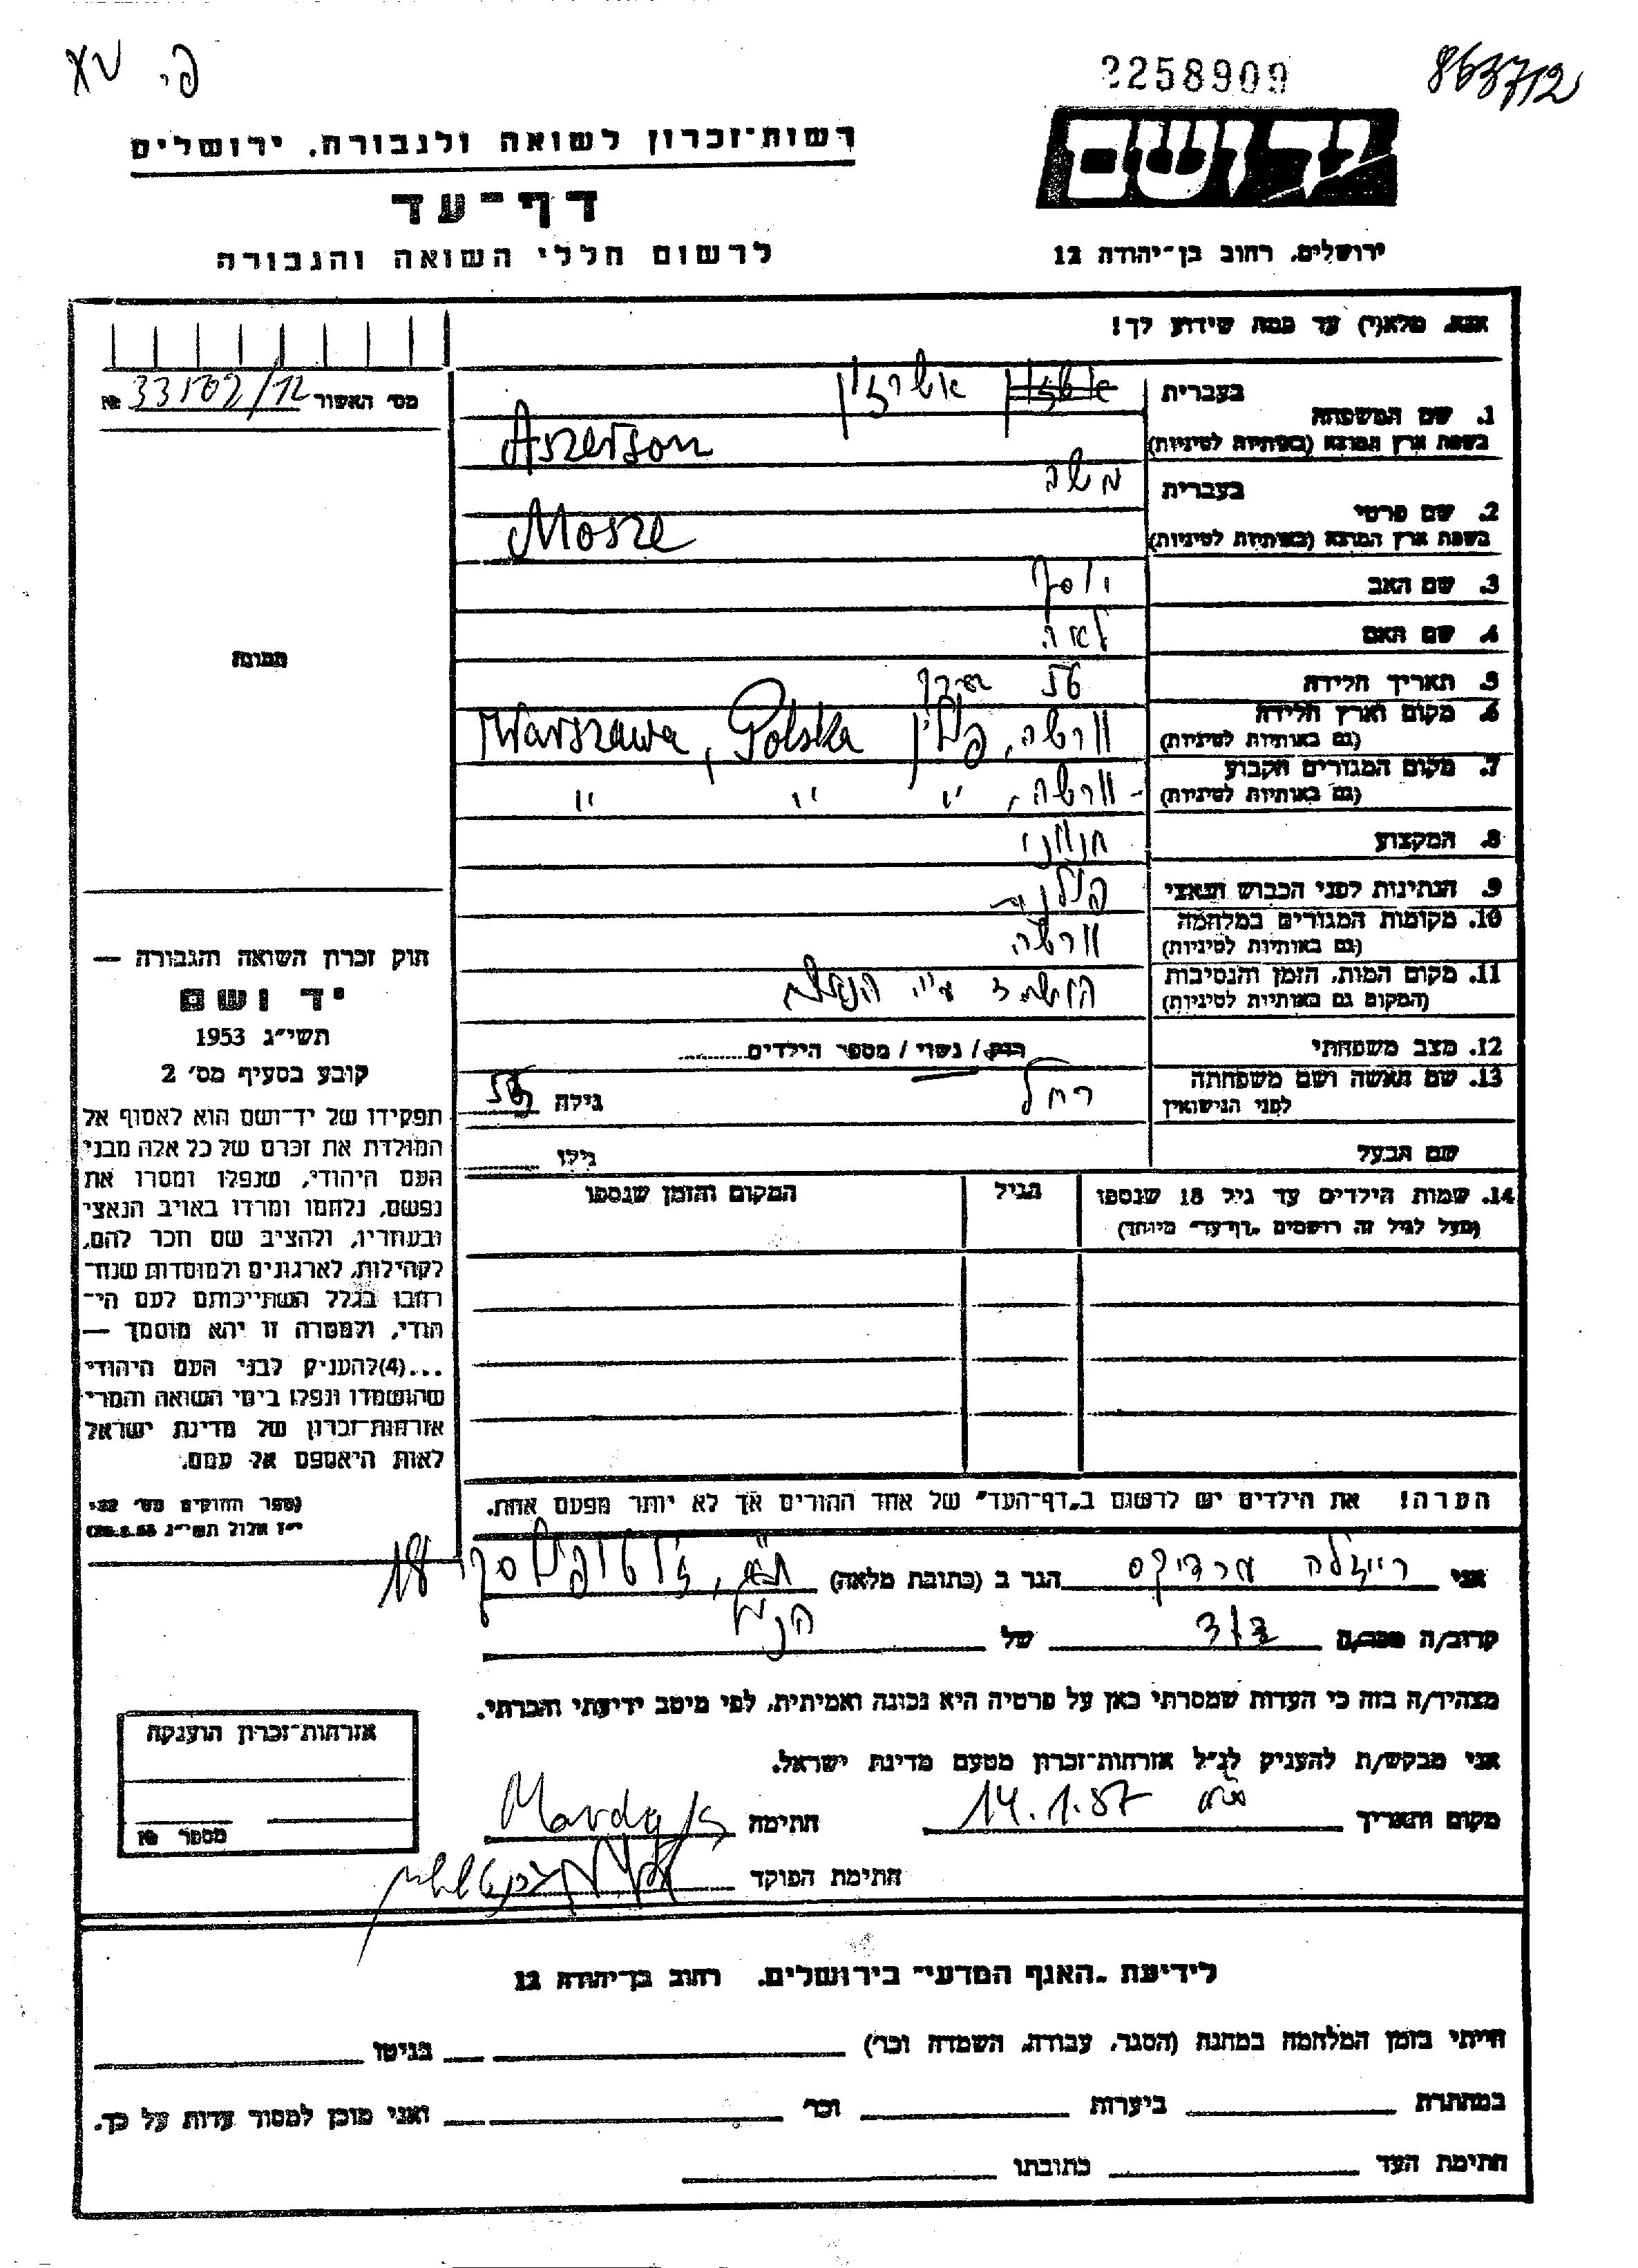 פי. XV
2258909
863712
רשות־זכרון לשואה ולגבורה, ירושלים
דף־עד
לרשום חללי השואה והגבורה
יד ושם
ירושלים, רחוב בן־יהודה 12
אנא, מלא(י) עד כמה שידוע לך!
מס׳ האשור 33502/12 №
תמונה
1. שם המשפחה
בעברית אשרזון
בשפת ארץ המוצא (באותיות לטיניות) Aszerson
2. שם פרטי
בעברית משה
בשפת ארץ המוצא (באותיות לטיניות) Mosze
3. שם האב יוסף
4. שם האם לאה
5. תאריך הלידה 56
6. מקום וארץ הלידה
(גם באותיות לטיניות) וורשה, פולין Warszawa, Polska
7. מקום המגורים הקבוע
(גם באותיות לטיניות) וורשה, " " "
8. המקצוע חנווני
9. הנתינות לפני הכבוש הנאצי פולנית
10. מקומות המגורים במלחמה
(גם באותיות לטיניות) וורשה
11. מקום המות, הזמן והנסיבות
(המקום גם באותיות לטיניות) הושמד ע״י הנאצים
12. מצב משפחתי רווק / נשוי / מספר הילדים
13. שם האשה ושם משפחתה
לפני הנישואין רחל גילה
שם הבעל גילו
14. שמות הילדים עד גיל 18 שנספו
(מעל לגיל זה רושמים „דף־עד״ מיוחד)
הגיל
המקום והזמן שנספו
חוק זכרון השואה והגבורה —
יד ושם
תשי״ג 1953
קובע בסעיף מס׳ 2
תפקידו של יד־ושם הוא לאסוף אל
המולדת את זכרם של כל אלה מבני
העם היהודי, שנפלו ומסרו את
נפשם, נלחמו ומרדו באויב הנאצי
ובעוזריו, ולהציב שם וזכר להם,
לקהילות, לארגונים ולמוסדות שנח־
רבו בגלל השתייכותם לעם הי־
הודי, ולמטרה זו יהא מוסמך —
...(4)להעניק לבני העם היהודי
שהושמדו ונפלו בימי השואה והמרי
אזרחות־זכרון של מדינת ישראל
לאות היאספם אל עמם.
(ספר החוקים מס׳ 132,
י״ז אלול תשי״ג 28.8.53)
הערה! את הילדים יש לרשום ב„דף־העד״ של אחד ההורים אך לא יותר מפעם אחת.
אני רייזלה מרדיקס הגר ב (כתובת מלאה) ת״א, ז׳בוטינסקי 18
קרוב/ה מכר/ה דוד של הנ״ל
מצהיר/ה בזה כי העדות שמסרתי כאן על פרטיה היא נכונה ואמיתית, לפי מיטב ידיעתי והכרתי.
אני מבקש/ת להעניק לנ״ל אזרחות־זכרון מטעם מדינת ישראל.
מקום ותאריך 14.1.57 חתימה
חתימת הפוקד
אזרחות־זכרון הוענקה
מספר №
לידיעת „האגף המדעי״ בירושלים, רחוב בן־יהודה 12
הייתי בזמן המלחמה במחנה (הסגר, עבודה, השמדה וכו׳) בגיטו
במחתרת ביערות וכו׳ ואני מוכן למסור עדות על כך.
חתימת העד כתובתו